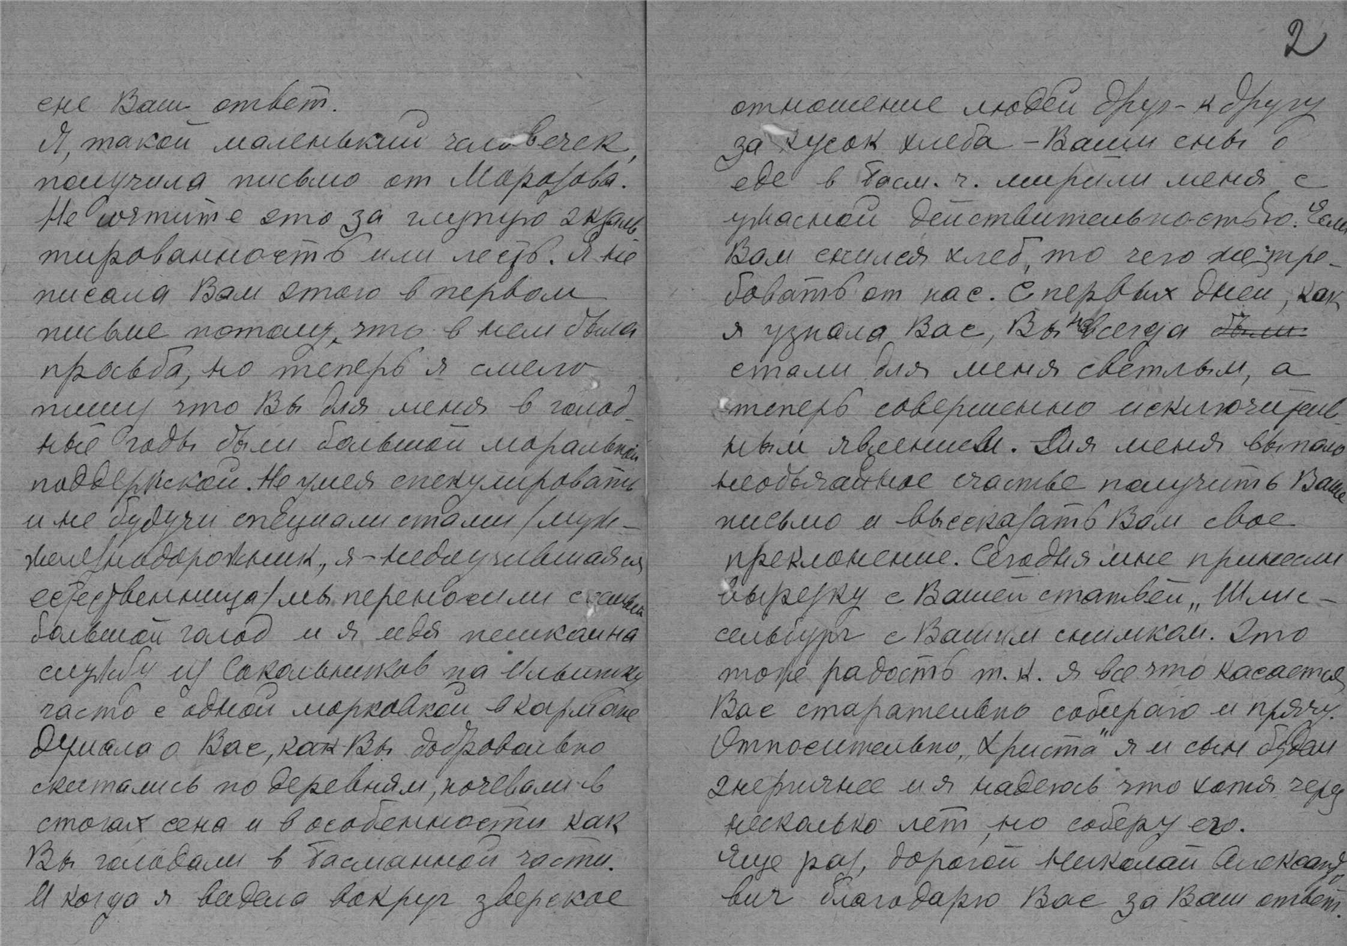 ене Ваш ответ.
Я, такой маленький человечек,
получила письмо от Морозова.
Не сочтите это за глупую экзаль
тированность или лесть. Я не
писала Вам этого в первом
письме потому, что в нем была
просьба, но теперь я смело
пишу что Вы для меня в голод
ные годы были большой моральной
поддержкой. Не умея спекулировать
и не будучи специалистами /муж-
железнодорожник, я - недоучившаяся
естественница/ мы переносили с семьей
большой голод и я идя пешком на
службу из Сокольников на Ильинку
часто с одной морковкой в кармане
думала о Вас, как Вы добровольно
скитались по деревням, ночевали в
стогах сена и в особенности как
Вы голодали в Басманной части.
И когда я видела вокруг зверское
2
отношение людей друг- к другу
за кусок хлеба - Ваши сны о
еде в Басм. ч. мирили меня с
ужасной действительностью. Если
Вам снился хлеб, то чего же тре-
бовать от нас. С первых дней, как
я узнала Вас, Вы навсегда были
стали для меня светлым, а
теперь совершенно исключитель
ным явлением. Для меня выпало
необычайное счастье получить Ваше
письмо и высказать Вам свое
преклонение. Сегодня мне принесли
вырезку с Вашей статьей „Шлис-
сельбург с Вашим снимком. Это
тоже радость т. к. я все что касается
Вас старательно собираю и прячу.
Относительно „Христа" я и сын будем
энергичнее и я надеюсь что хотя через
несколько лет, но соберу его.
Еще раз, дорогой Николай Александро
вич благодарю Вас за Ваш ответ.